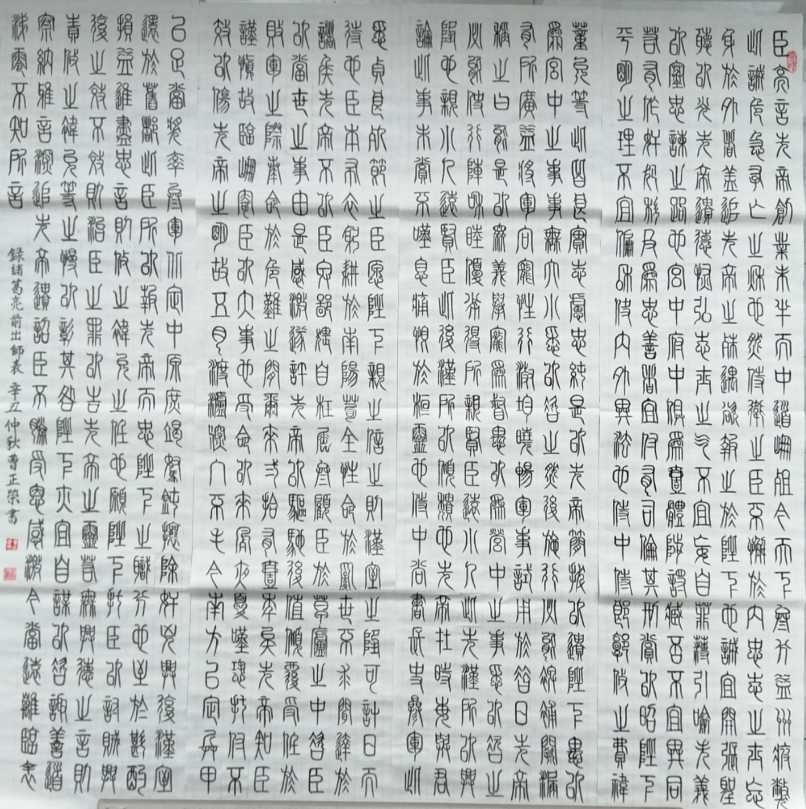 臣亮言先帝創業未半而中道崩殂今天下叁分益州疲弊
此誠危急存亡之秋也然侍衛之臣不懈於內忠志之士忘
身於外者蓋追先帝之殊遇欲報之於陛下也誠宜開張聖
聽以光先帝遺德恢弘志士之氣不宜妄自菲薄引喻失義
以塞忠諫之路也宮中府中俱爲壹體陟罰臧否不宜異同
若有作奸犯科及爲忠善者宜付有司論其刑賞以昭陛下
平明之理不宜偏私使內外異法也侍中侍郎郭攸之費禕
董允等此皆良實志慮忠純是以先帝簡拔以遺陛下愚以
爲宮中之事事無大小悉以咨之然後施行必能裨補闕漏
有所廣益將軍向寵性行淑均曉暢軍事試用於昔日先帝
稱之曰能是以衆議舉寵爲督愚以爲營中之事悉以咨之
必能使行陣和睦優劣得所親賢臣遠小人此先漢所以興
隆也親小人遠賢臣此後漢所以傾頹也先帝在時每與臣
論此事未嘗不嘆息痛恨於桓靈也侍中尚書長史參軍此
悉貞良死節之臣願陛下親之信之則漢室之隆可計日而
待也臣本布衣躬耕於南陽苟全性命於亂世不求聞達於
諸侯先帝不以臣卑鄙猥自枉屈叁顧臣於草廬之中咨臣
以當世之事由是感激遂許先帝以驅馳後值傾覆受任於
敗軍之際奉命於危難之間爾來貳拾有壹年矣先帝知臣
謹慎故臨崩寄臣以大事也受命以來夙夜憂嘆恐托付不
效以傷先帝之明故五月渡瀘深入不毛今南方已定兵甲
已足當獎率叁軍北定中原庶竭駑鈍攘除奸凶興復漢室
還於舊都此臣所以報先帝而忠陛下之職分也至於斟酌
損益進盡忠言則攸之禕允之任也願陛下托臣以討賊興
復之效不效則治臣之罪以告先帝之靈若無興德之言則
責攸之禕允等之慢以彰其咎陛下亦宜自謀以咨諏善道
察納雅言深追先帝遺詔臣不勝受恩感激今當遠離臨表
涕零不知所言
錄諸葛亮前出師表 辛丑仲秋曹正榮書